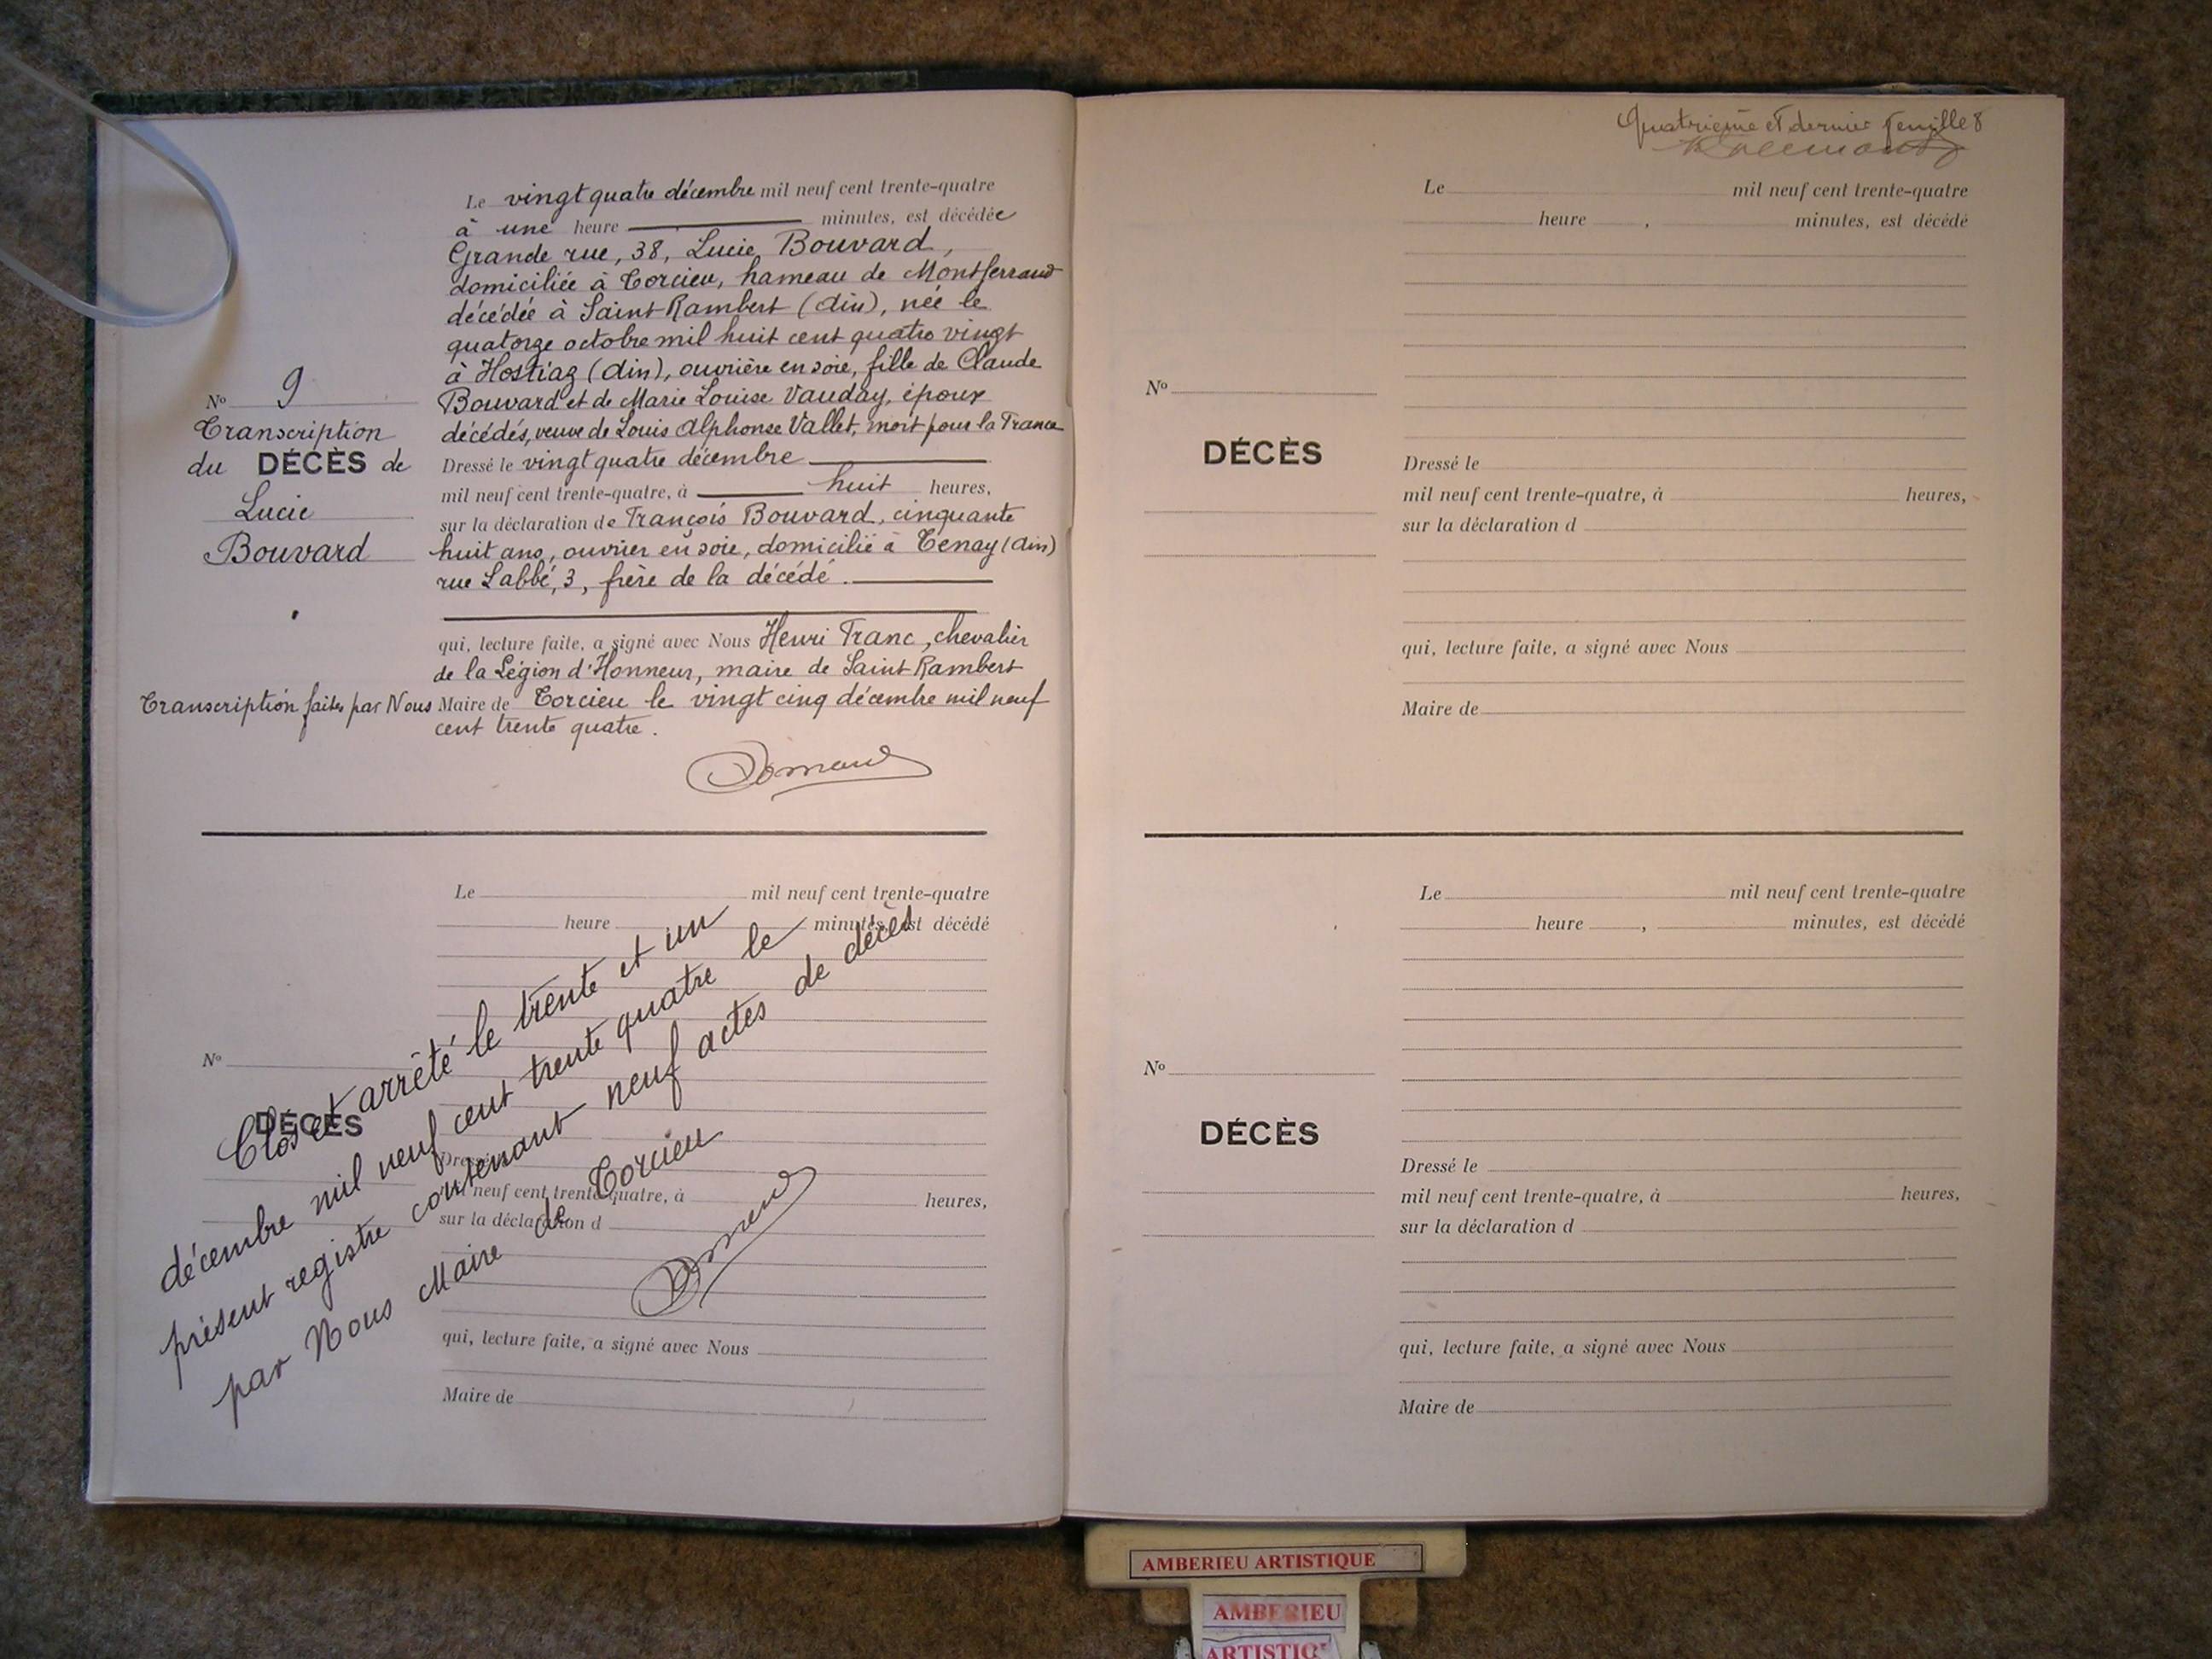 Le vingt quatre décembre mil neuf cent trente-quatre
à une heure minutes, est décédée
Grande rue, 38, Lucie Bouvard,
domiciliée à Torcieu, hameau de Montferrand
décédée à Saint Rambert (Ain), née le
quatorze octobre mil huit cent quatre vingt
à Hostiaz (Ain), ouvrière en soie, fille de Claude
Bouvard et de Marie Louise Vauday, époux
décédés, veuve de Louis Alphonse Vallet, mort pour la France
Nº 9
Transcription
du DÉCÈS de
Lucie
Bouvard
Dressé le vingt quatre décembre
mil neuf cent trente-quatre, à huit heures,
sur la déclaration de François Bouvard, cinquante
huit ans, ouvrier en soie, domicilié à Tenay (Ain)
rue Labbé, 3, frère de la décédé.
qui, lecture faite, a signé avec Nous Henri Franc, chevalier
de la Légion d'Honneur, maire de Saint Rambert
Transcription faites par Nous Maire de Torcieu le vingt cinq décembre mil neuf
cent trente quatre.
Le mil neuf cent trente-quatre
heure minutes, est décédé
Nº
DÉCÈS
Dressé
mil neuf cent trente-quatre, à heures,
sur la déclaration d
qui, lecture faite, a signé avec Nous
Maire de
Clos et arrêté le trente et un
décembre mil neuf cent trente quatre le
présent registre contenant neuf actes de décès
par Nous Maire de Torcieu
Quatrième et dernier feuille 8
Le mil neuf cent trente-quatre
heure , minutes, est décédé
Nº
DÉCÈS
Dressé le
mil neuf cent trente-quatre, à heures,
sur la déclaration d
qui, lecture faite, a signé avec Nous
Maire de
Le mil neuf cent trente-quatre
heure , minutes, est décédé
Nº
DÉCÈS
Dressé le
mil neuf cent trente-quatre, à heures,
sur la déclaration d
qui, lecture faite, a signé avec Nous
Maire de
AMBERIEU ARTISTIQUE
AMBERIEU
ARTISTIQ